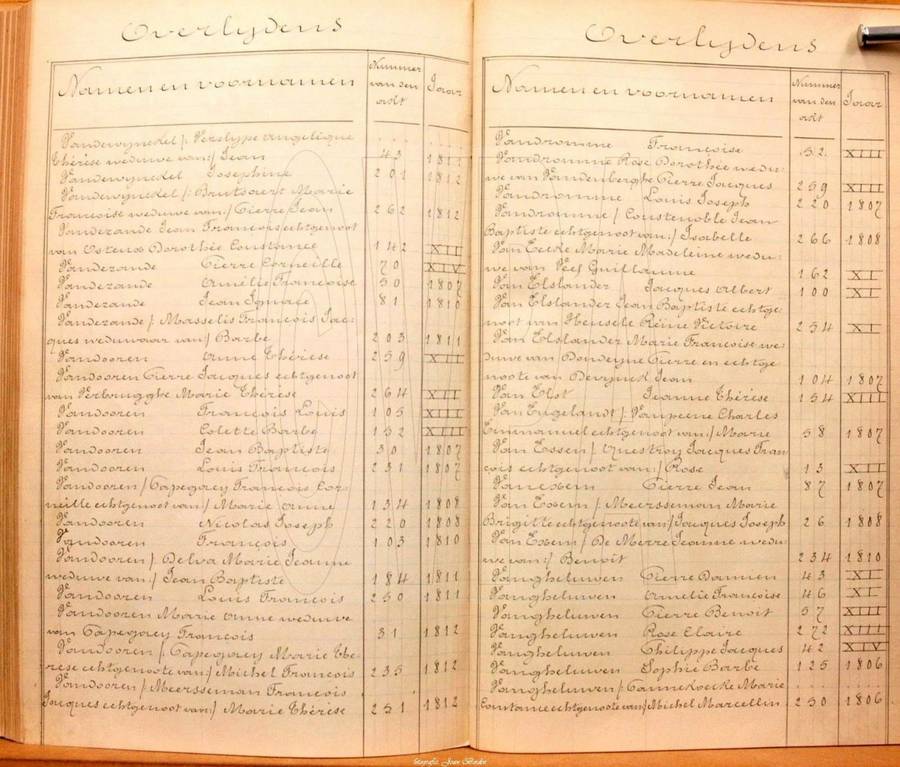 Overlydens
Namen en voornamen
Nummer van den adt
Jaar
Vandewynckel /: Verslype Angelique
Thérèse weduwe van:/ Jean 43 1811
Vandewynckel Josephine 201 1812
Vandewynckel /: Brutsaert Marie
Françoise weduwe van:/ Pierre Jean 262 1812
Vandezande Jean François echtgenoot
van Dorothée Constance 142 XII
Vandezande Pierre Corneille 70 XIV
Vandezande Amélie Françoise 50 1807
Vandezande Jean Ignace 81 1810
Vandezande /: Masselis François Jac-
ques weduwaar van:/ Barbe 203 1811
Vandooren Anne Thérèse 259 XIII
Vandooren Pierre Jacques echtgenoot
van Verbrugghe Marie Thérèse 264 XII
Vandooren François Louis 105 XIII
Vandooren Colette Barbe 132 XIII
Vandooren Jean Baptiste 30 1807
Vandooren Louis François 231 1807
Vandooren /: Capegoey François Cor-
neille echtgenoot van:/ Marie Anne 134 1808
Vandooren Nicolas Joseph 220 1808
Vandooren François 103 1810
Vandooren /: Delva Marie Jeanne
weduwe van:/ Jean Baptiste 184 1811
Vandooren Louis François 250 1811
Vandooren Marie Anne weduwe
van Capegoey François 31 1812
Vandooren /: Capegoey Marie Thé-
rèse echtgenoote van:/ Michel François 235 1812
Vandooren /: Meersseman François
Jacques echtgenoot van:/ Marie Thérèse 251 1812
Overlydens
Namen en voornamen
Nummer van den adt
Jaar
Vandromme Françoise 32 XIII
Vandromme Rose Dorothée wedu-
we van Vandenberghe Pierre Jacques 259 XIII
Vandromme Louis Joseph 220 1807
Vandromme /: Coustenoble Jean
Baptiste echtgenoot van:/ Isabelle 266 1808
Van Eecke Marie Madeleine wedu-
we van Guillaume 162 XI
Van Elslander Jacques Albert 100 XI
Van Elslander Jean Baptiste echtge-
noot van Heusele Reine Victoire 254 XI
Van Elslander Marie Françoise we-
duwe van Dondeyne Pierre en echtge-
noote van Derynck Jean 104 1807
Van Elst Jeanne Thérèse 154 XIII
Van Engelandt /: Vanpeene Charles
Emmanuel echtgenoot van:/ Marie 58 1807
Van Essen /: Questroy Jacques Fran-
çois echtgenoot van:/ Rose 13 XII
Van Exem Pierre Jean 87 1807
Van Exem /: Meersseman Marie
Brigitte echtgenoote van:/ Jacques Joseph 26 1808
Van Exem /: De Merre Jeanne wedu-
we van:/ Benoit 234 1810
Vangheluwen Pierre Damien 43 XI
Vangheluwen Amelie Françoise 46 XI
Vangheluwen Pierre Benoit 57 XIII
Vangheluwen Rose Claire 272 XIII
Vangheluwen Philippe Jacques 42 XIV
Vangheluwen Sophie Barbe 125 1806
Vangheluwen /: Cannekoecke Marie
Constance echtgenoote van:/ Michel Marcellin 250 1806